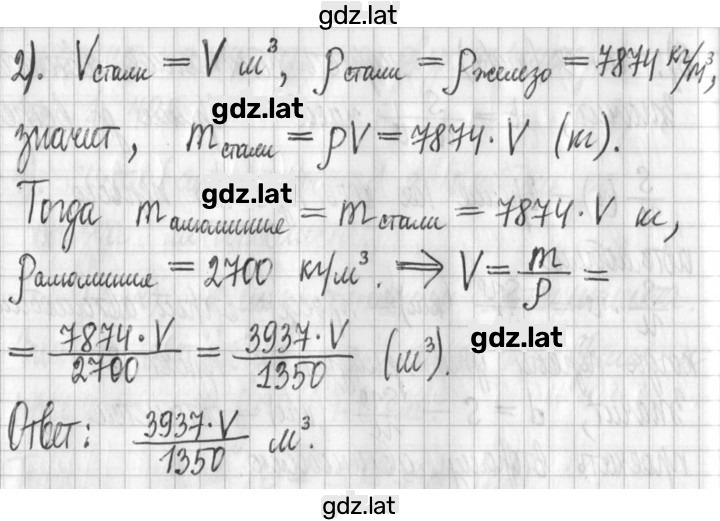 gdz.lat
2). Vстали = V м³, ρстали = ρжелезо = 7874 кг/м³,
gdz.lat
значит, mстали = ρV = 7874 · V (кг).
gdz.lat
Тогда mалюминие = mстали = 7874 · V кг,
ρалюминие = 2700 кг/м³. ⇒ V = m/ρ =
= 7874 · V/2700 = 3937 · V/1350 (м³).
gdz.lat
Ответ: 3937 · V/1350 м³.
gdz.lat